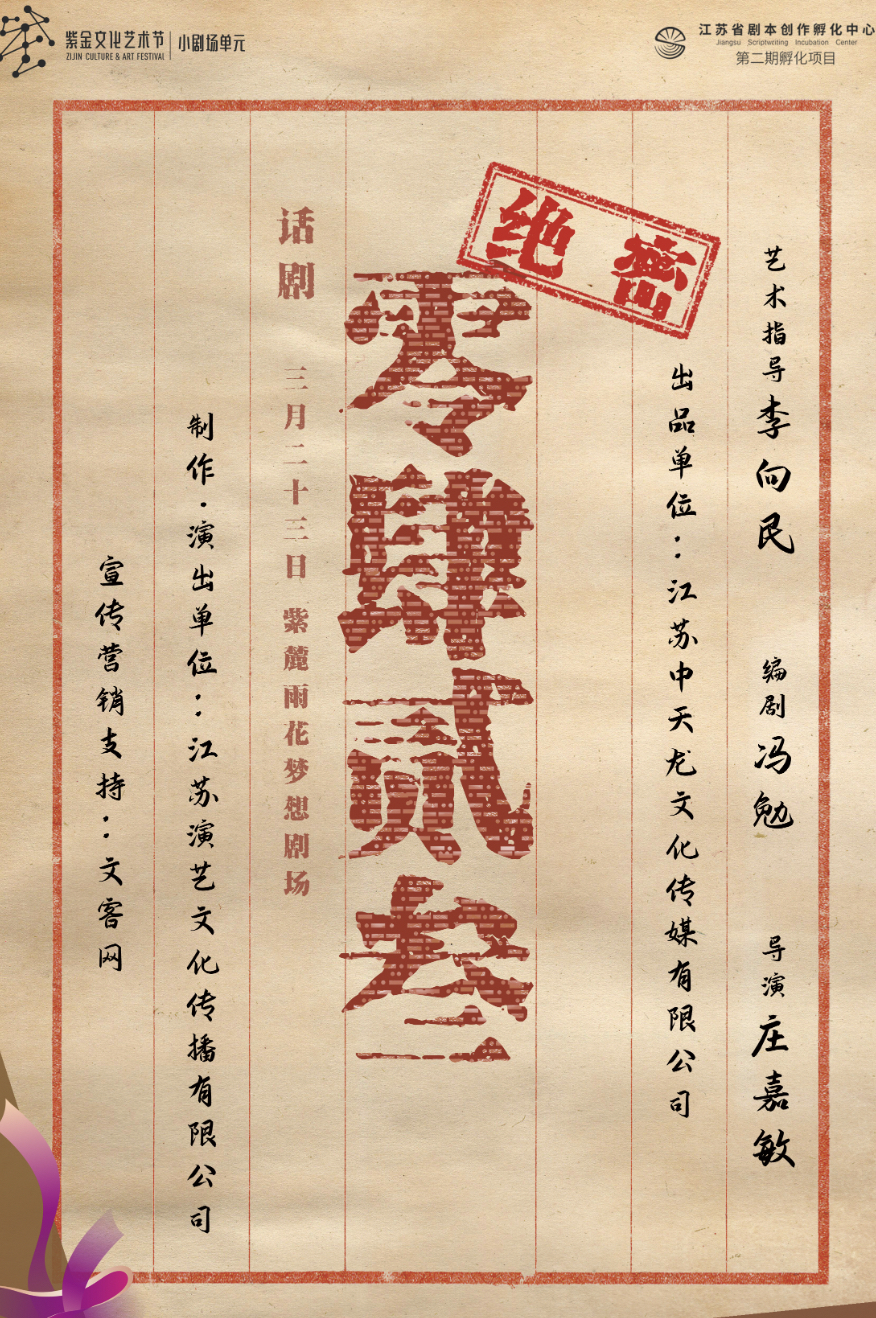 紫金文化艺术节
ZIJIN CULTURE & ART FESTIVAL
小剧场单元
江苏省剧本创作孵化中心
Jiangsu Scriptwriting Incubation Center
第二期孵化项目
艺术指导李向民 编剧冯勉 导演庄嘉敏
出品单位：江苏中天龙文化传媒有限公司
绝密
零肆贰叁
话剧 三月二十三日 紫麓雨花梦想剧场
制作·演出单位：江苏演艺文化传播有限公司
宣传营销支持：文客网